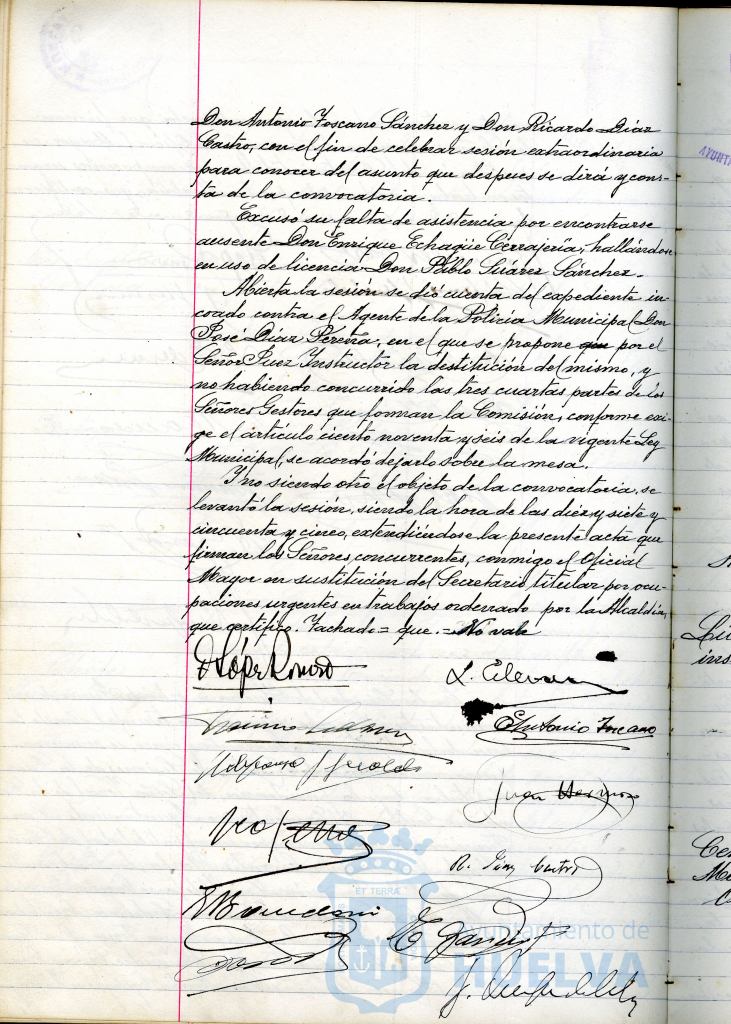 Don Antonio Toscano Sánchez y Don Ricardo Díaz
Castro, con el fin de celebrar sesión extraordinaria
para conocer del asunto que despues se dirá y cons-
ta de la convocatoria.
Excusó su falta de asistencia por encontrarse
ausente Don Enrique Echagüe Cerrajería, hallándose
en uso de licencia Don Pablo Suárez Sánchez.
Abierta la sesión se dió cuenta del expediente in-
coado contra el Agente de la Policía Municipal Don
José Díaz Pereña, en el que se propone que por el
Señor Juez Instructor la destitución del mismo, y
no habiendo concurrido las tres cuartas partes de los
Señores Gestores que forman la Comisión, conforme exi-
ge el artículo ciento noventa y seis de la vigente Ley
Municipal, se acordó dejarlo sobre la mesa.
Y no siendo otro el objeto de la convocatoria, se
levantó la sesión, siendo la hora de las diez y siete y
cincuenta y cinco, extendiéndose la presente acta que
firman los Señores concurrentes, conmigo el Oficial
Mayor en sustitución del Secretario titular por ocu-
paciones urgentes en trabajos ordenrado por la Alcaldía,
que certifico. Tachado = que. = No vale
López Romero
Antonio Toscano
Ildefonso
Juan
R. Díaz Castro
ET TERRÆ
Ayuntamiento de
HUELVA